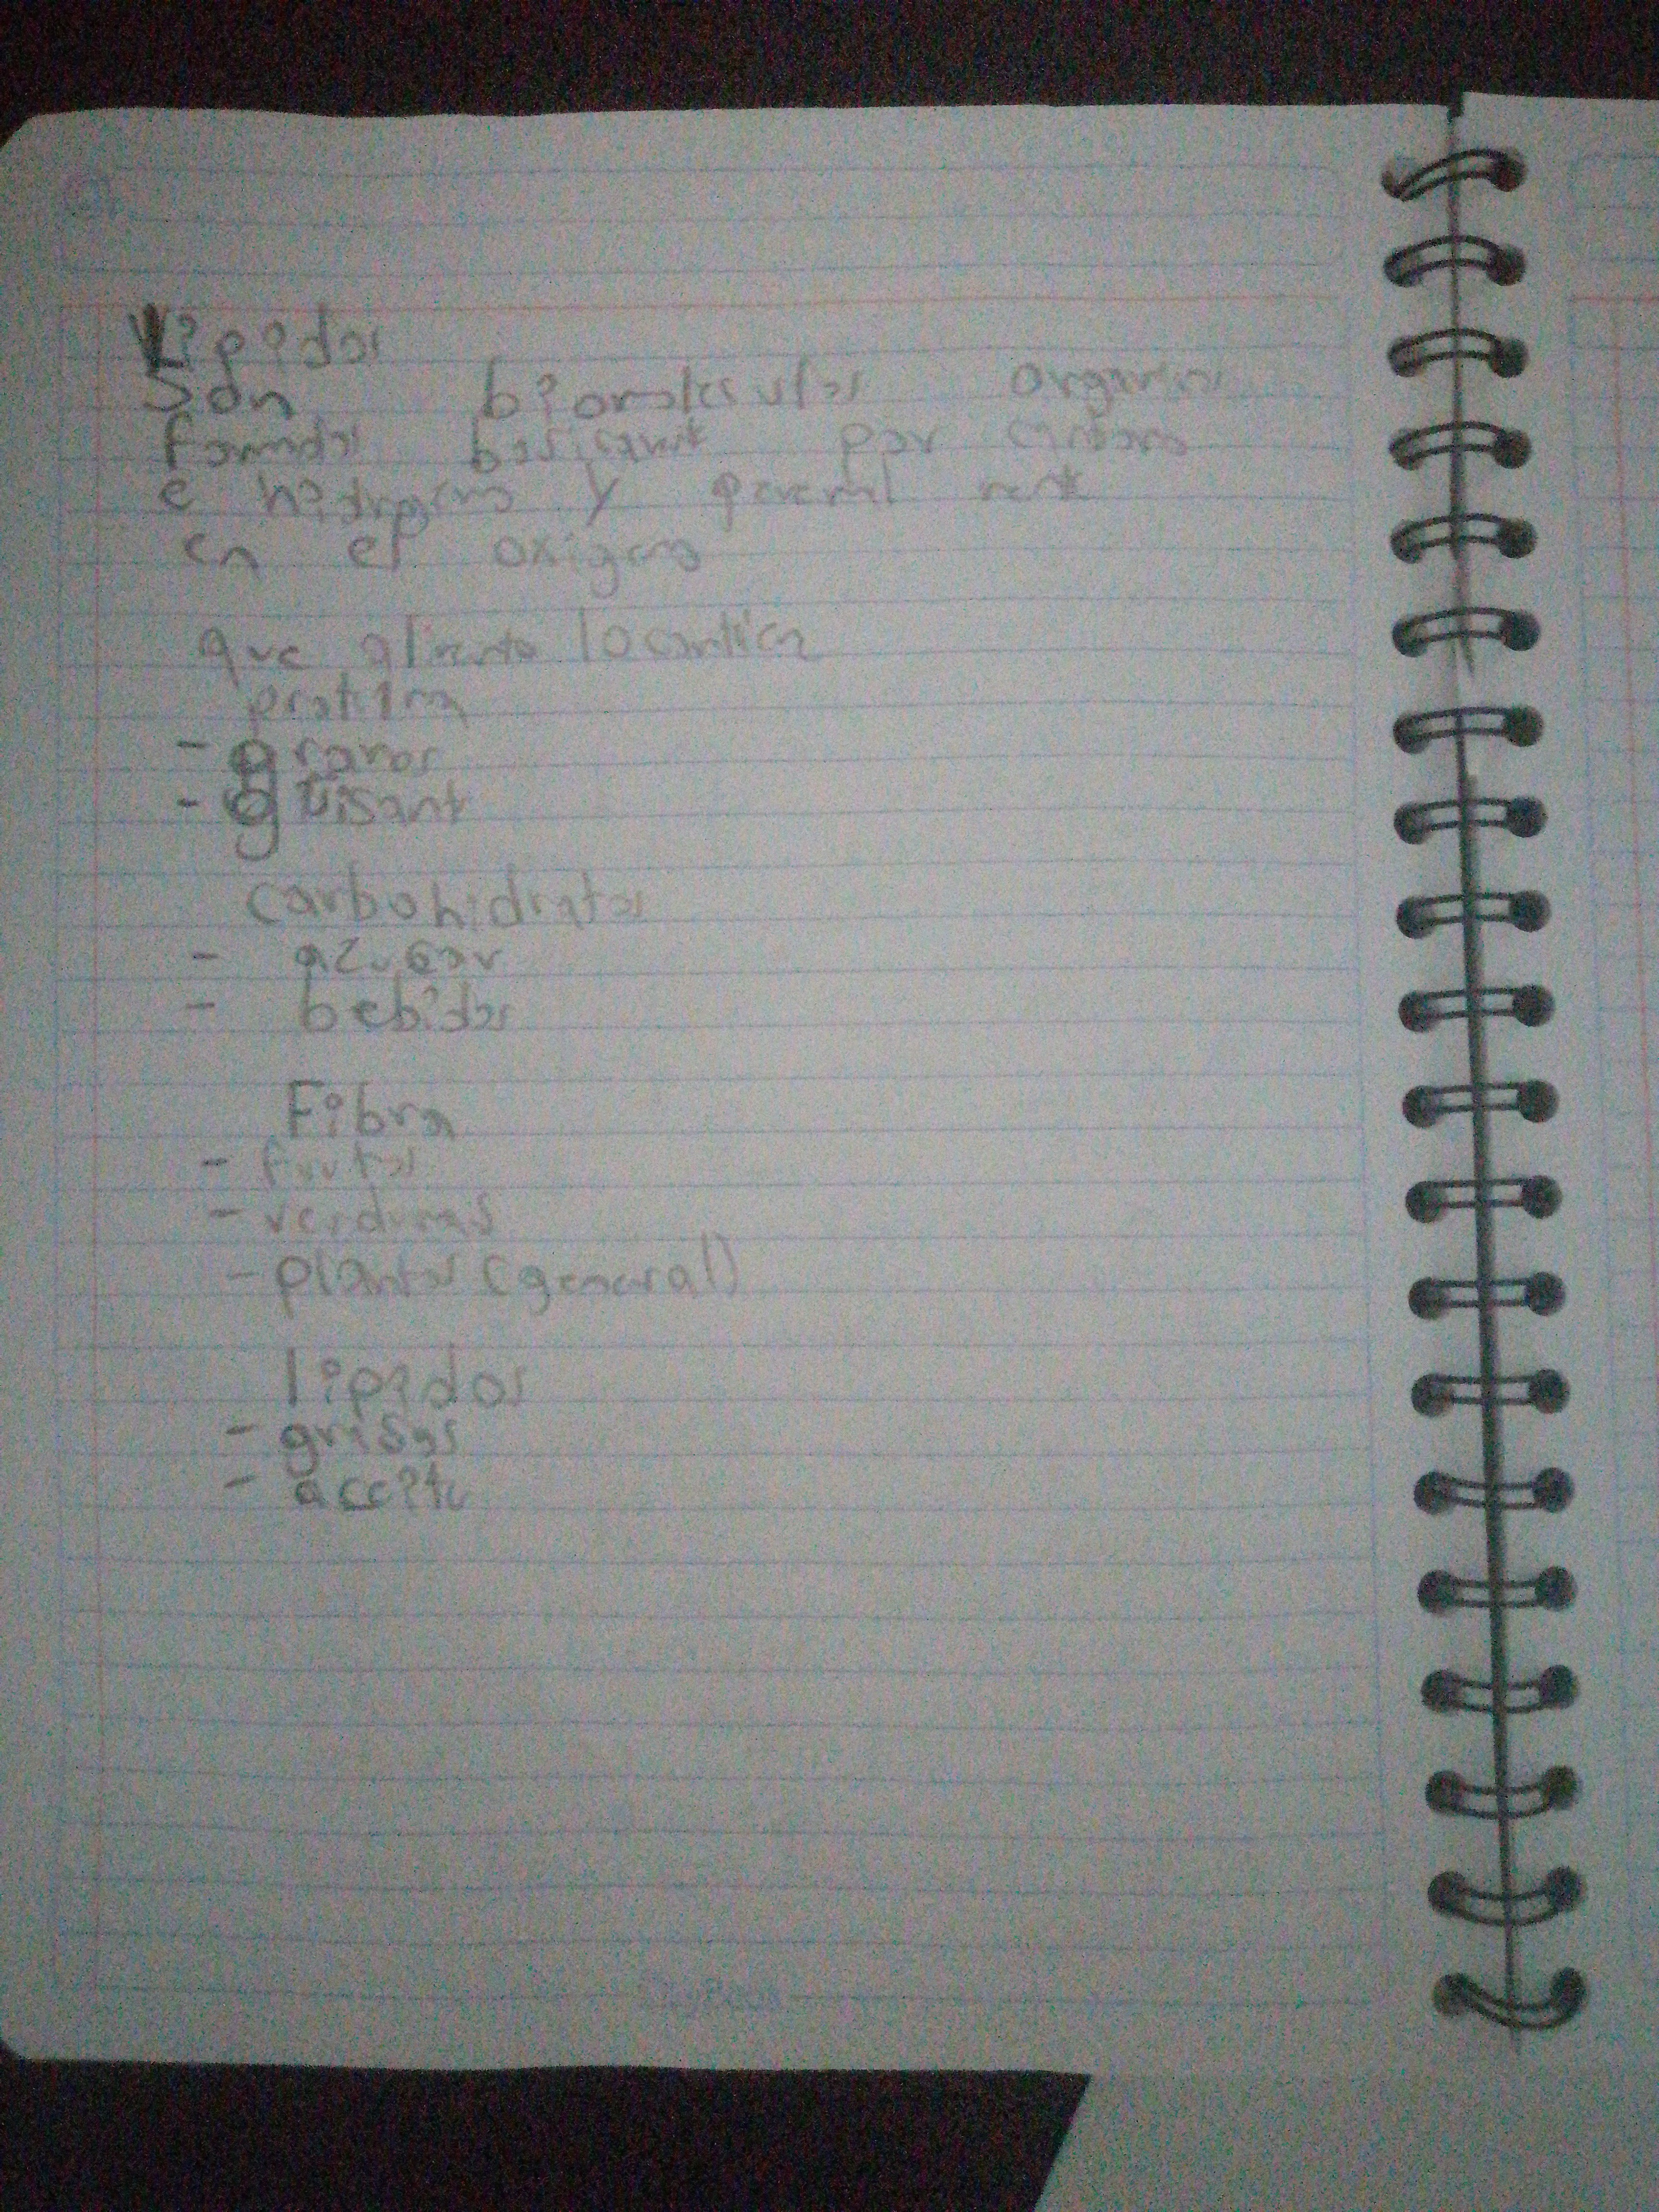 Lipidos
Son biomoleculas organicas
formdas basicamnt por carbono
e hidrogeno y general ment
en el oxigeno
que alimento lo contiene
protina
- granos
- guisant
carbohidratos
- azucar
- bebidas
Fibra
- frutas
- verduras
- plantas (general)
lipidos
- grasas
- aceite